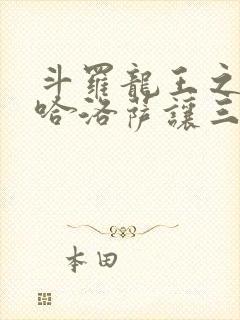 斗羅龍王之
哈洛薩讓三
本田